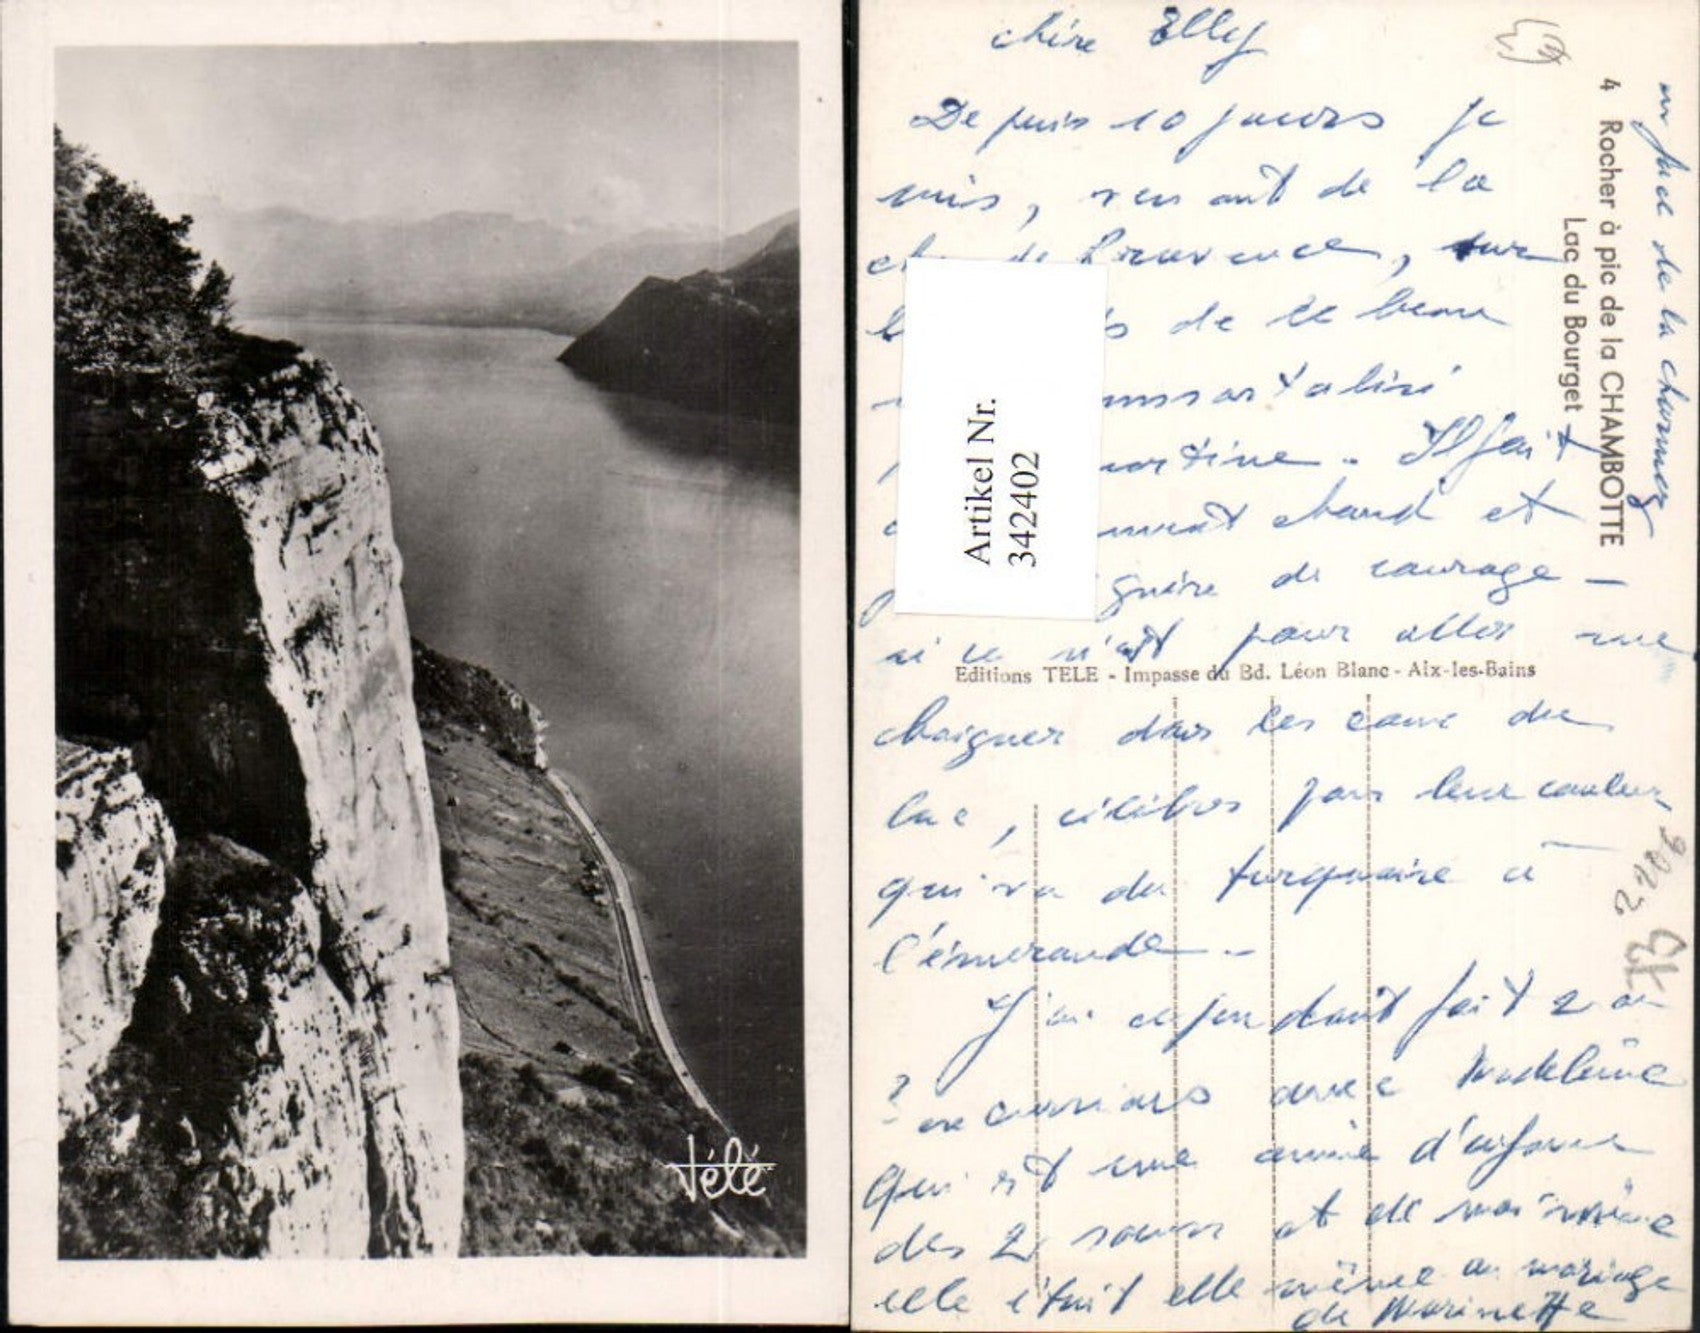 Télé
chère Elly
Depuis 10 jours je
suis, venant de la
de Provence, sur
de ce beau
immortalisé
Il fait
chaud et
guère de courage -
si ce n'est pour aller me
Editions TELE - Impasse du Bd. Léon Blanc - Aix-les-Bains
baigner dans les eaux du
lac, célèbres par leur couleur
qui va du turquoise à
l'émeraude -
J'ai cependant fait 2 ou
3 excursions avec Madeleine
qui est une amie d'enfance
des 2 sœurs et de moi même
elle était elle même au mariage
de Marinette
4 Rocher à pic de la CHAMBOTTE
Lac du Bourget
de la
Artikel Nr.
342402